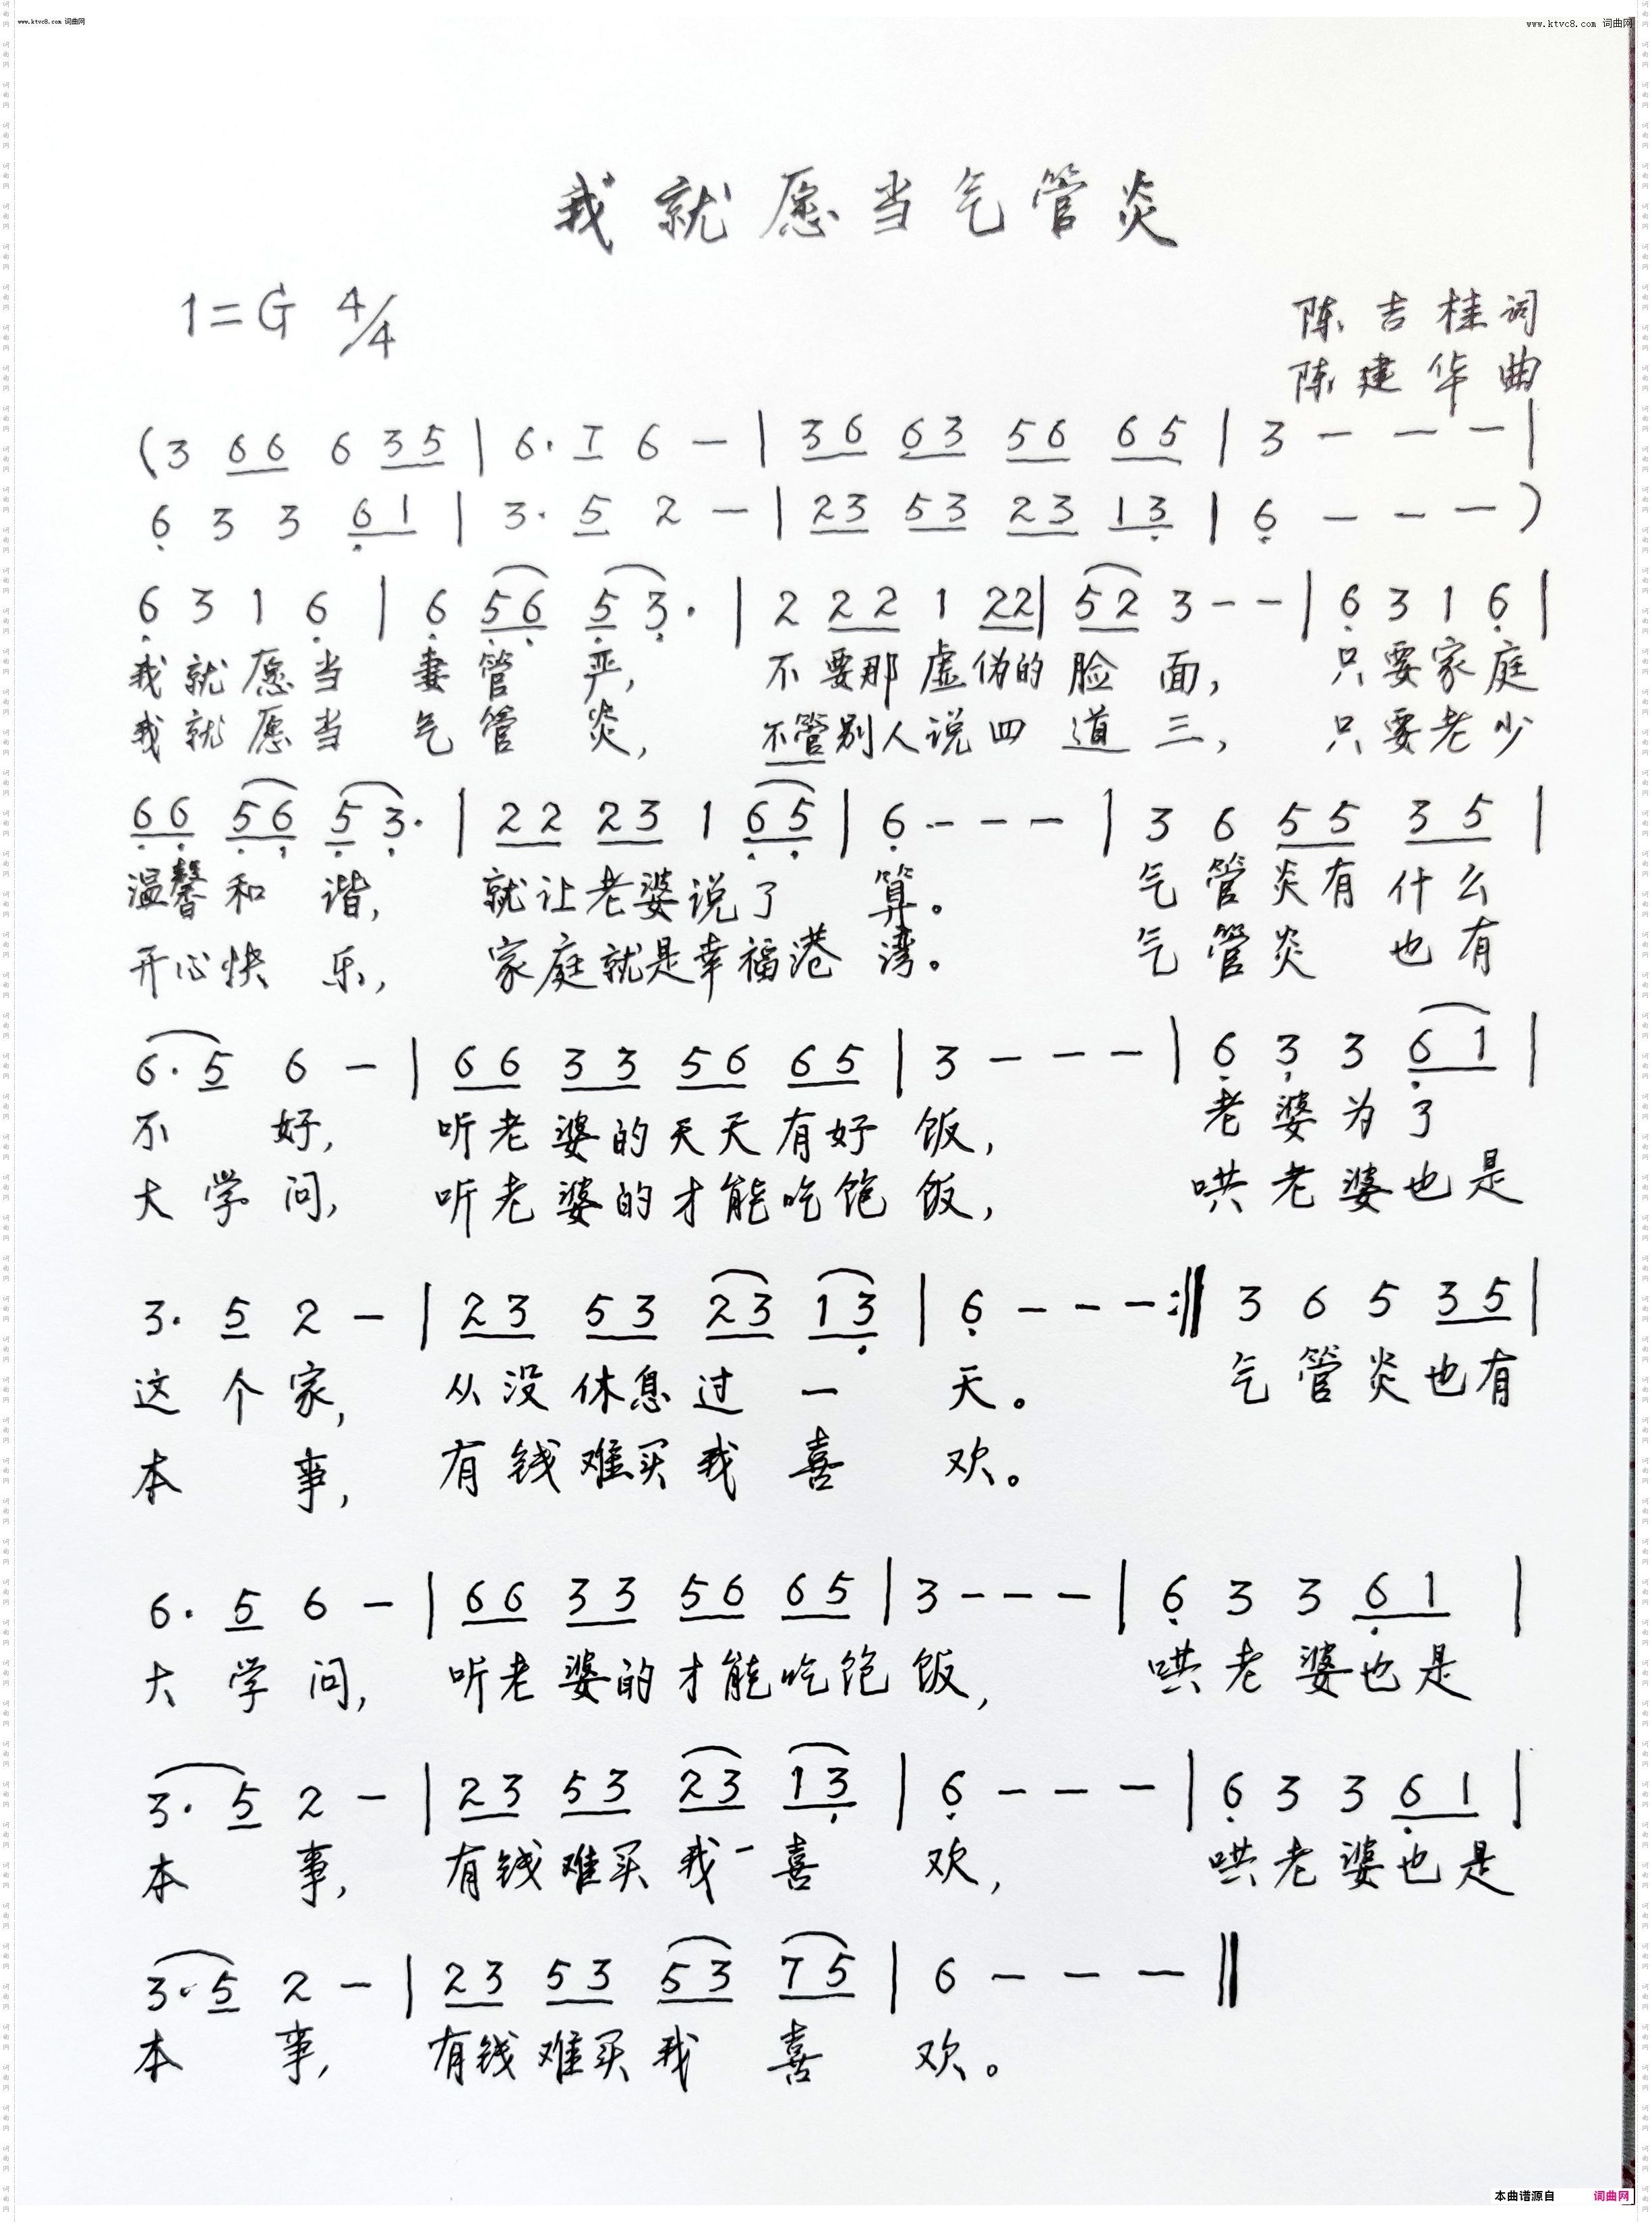 www.ktvc8.com 词曲网
www.ktvc8.com 词曲网
我就愿当气管炎
1=G 4/4
陈吉桂词
陈建华曲
(3 66 6 35 | 6· i 6 — | 36 63 56 65 | 3 — — — |
6 3 3 61 | 3· 5 2 — | 23 53 23 13 | 6 — — — )
6 3 1 6 | 6 56 53· | 2 22 1 22 | 52 3 — — | 6 3 1 6 |
我就愿当 妻管严, 不要那虚伪的脸面, 只要家庭
我就愿当 气管炎, 不管别人说四道三, 只要老少
66 56 53· | 22 23 1 65 | 6 — — — | 3 6 55 35 |
温馨和谐, 就让老婆说了算。 气管炎有什么
开心快乐, 家庭就是幸福港湾。 气管炎也有
6·5 6 — | 66 33 56 65 | 3 — — — | 6 3 3 61 |
不好, 听老婆的天天有好饭, 老婆为了
大学问, 听老婆的才能吃饱饭, 哄老婆也是
3· 5 2 — | 23 53 23 13 | 6 — — — :‖ 3 6 5 35 |
这个家, 从没休息过一天。 气管炎也有
本事, 有钱难买我喜欢。
6· 5 6 — | 66 33 56 65 | 3 — — — | 6 3 3 61 |
大学问, 听老婆的才能吃饱饭, 哄老婆也是
3· 5 2 — | 23 53 23 13 | 6 — — — | 6 3 3 61 |
本事, 有钱难买我喜欢, 哄老婆也是
3·5 2 — | 23 53 53 75 | 6 — — — ‖
本事, 有钱难买我喜欢。
本曲谱源自 词曲网